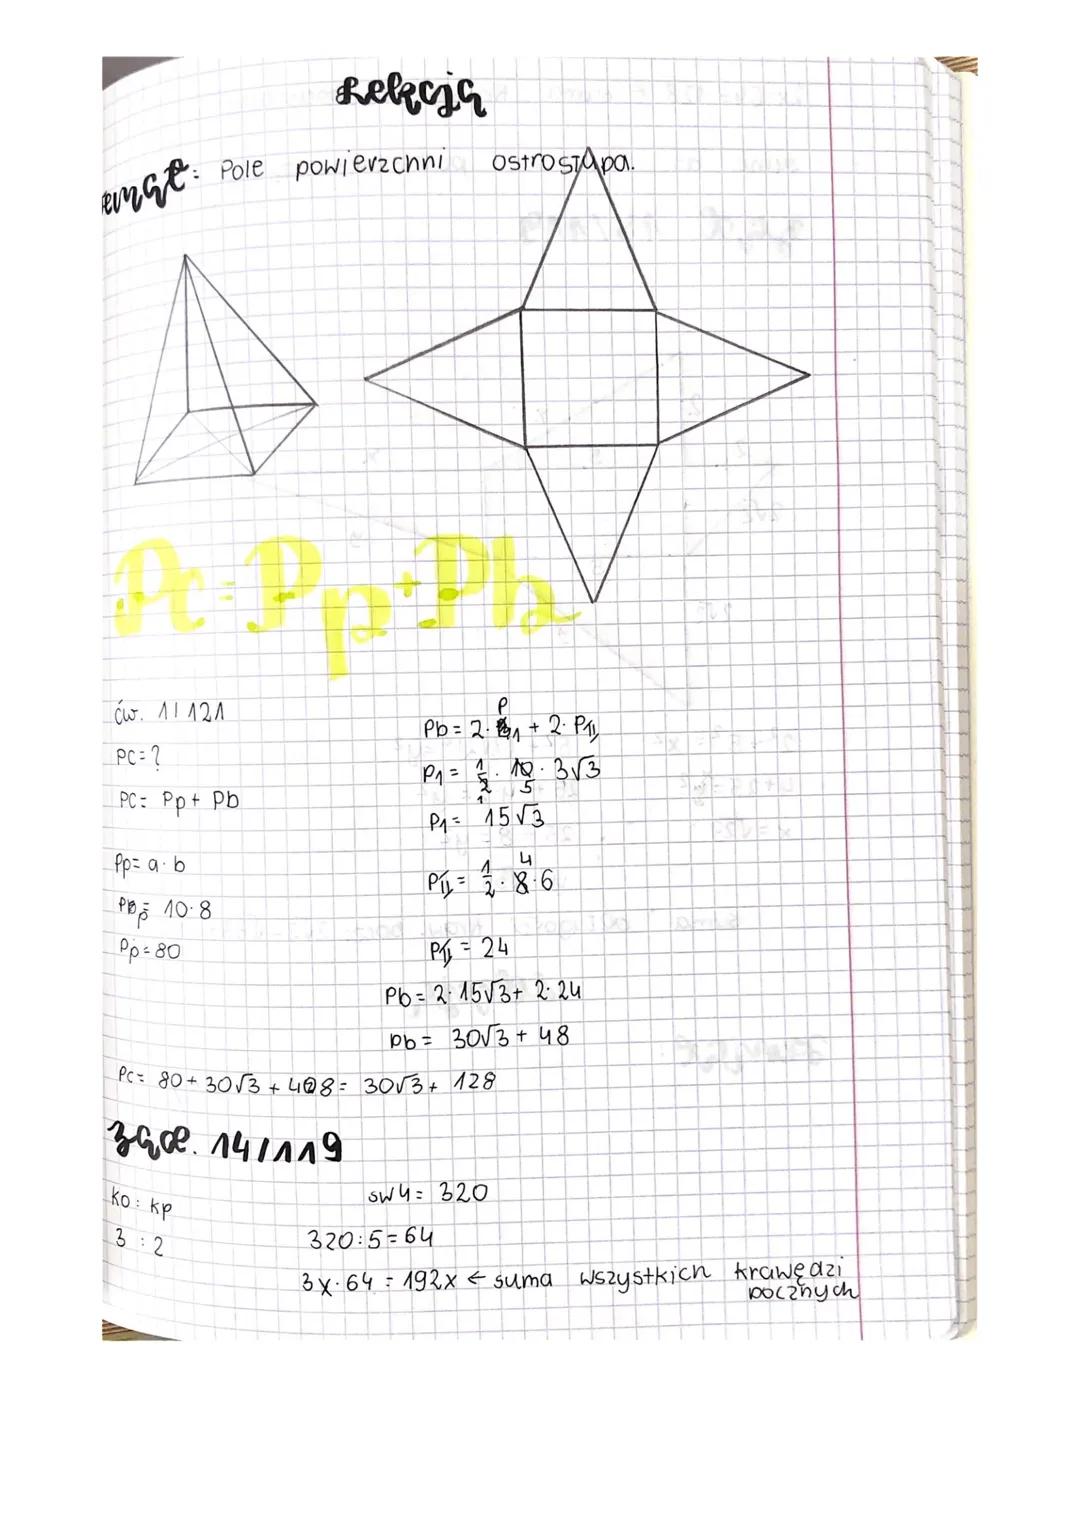 Lekcja
Temat: Pole powierzchni ostrosłupa.
Pc=Pp+Pb
ćw. 1/121
Pc=?
Pc= Pp+ Pb
Pp= a·b
Pp= 10·8
Pp=80
Pb= 2·P1 + 2·PII
P1= 1/2 · 10 · 3√3
5
1
P1= 15√3
4
PII= 1/2 · 8·6
PII = 24
Pb= 2·15√3+ 2·24
Pb= 30√3+ 48
Pc= 80+ 30√3 + 48= 30√3+ 128
zad. 14/119
ko: kp
3 : 2
sw4= 320
320:5=64
3x·64 = 192x ← suma wszystkich krawędzi
bocznych